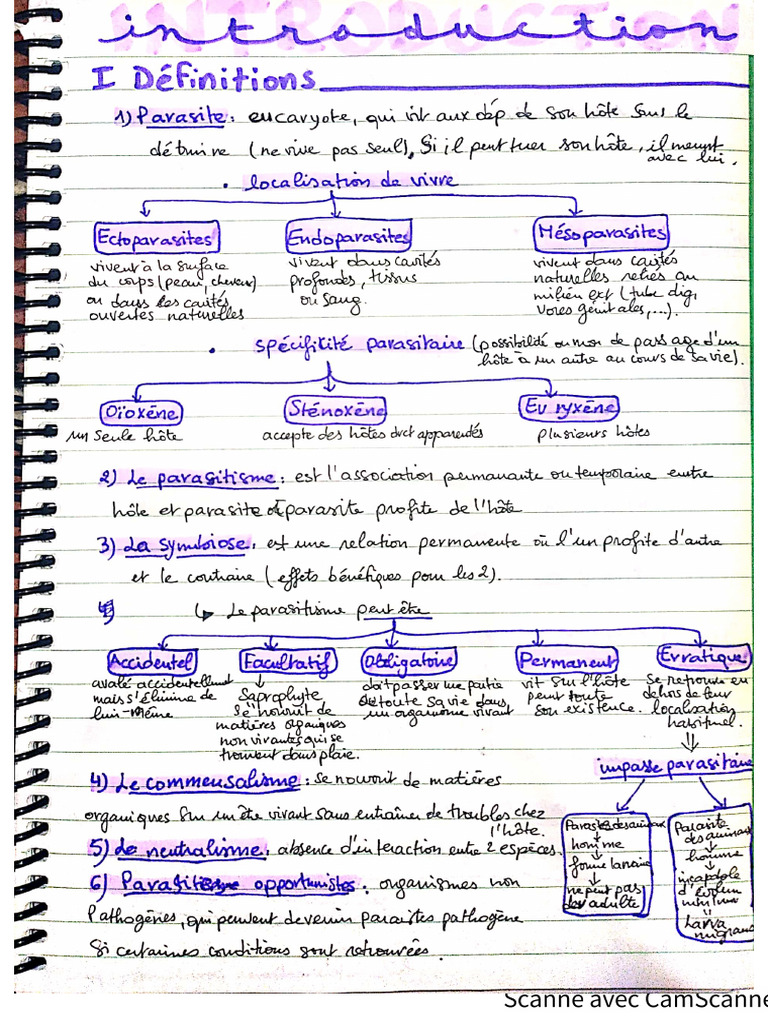 introduction
I Définitions
1) Parasite: eucaryote, qui vit aux dép de son hôte sans le
détruire (ne vive pas seul), Si il peut tuer son hôte, il meurt
avec lui.
• localisation de vivre
Ectoparasites Endoparasites Mésoparasites
vivent à la surface
du corps (peau, cheveux)
ou dans les cavités
ouvertes naturelles
vivent dans cavités
profondes, tissus
ou sang.
vivent dans cavités
naturelles reliés au
milieu ext (tube dig,
voies génitales,...).
• spécificité parasitaire (possibilité ou non de passage d'un
hôte à un autre au cours de sa vie).
Oioxène Sténoxène Euryxène
un seule hôte accepte des hôtes dvct apparentés plusieurs hôtes
2) Le parasitisme: est l'association permanante ou temporaire entre
hôte et parasite parasite profite de l'hôte
3) La symbiose: est une relation permanente où l'un profite d'autre
et le contraire (effets bénéfiques pour les 2).
4) ↳ Le parasitisme peut être
Accidentel Facultatif Obligatoire Permanent Erratique
avalé accidentellement
mais s'élimine de
lui-même
Saprophyte
se nourrit de
matières organiques
non vivantes qui se
trouvent dans plaie.
doit passer une partie
ou toute sa vie dans
un organisme vivant
vit sur l'hôte
pent toute
son existence.
se retrouve en
dehors de leur
localisation
habituel.
impasse parasitaire
Parasite des animaux
homme
forme larvaire
ne peut pas
adulte
Parasite
des animaux
homme
incapable
d'évoluer
Larva
migrans
4) Le commensalisme: se nourrit de matières
organiques sur un être vivant sans entraîner de troubles chez
l'hôte.
5) Le neutralisme: absence d'interaction entre 2 espèces.
6) opportunistes: organismes non
Pathogènes, qui peuvent devenir parasites pathogène
Si certaines conditions sont retrouvées.
Scanné avec CamScanne